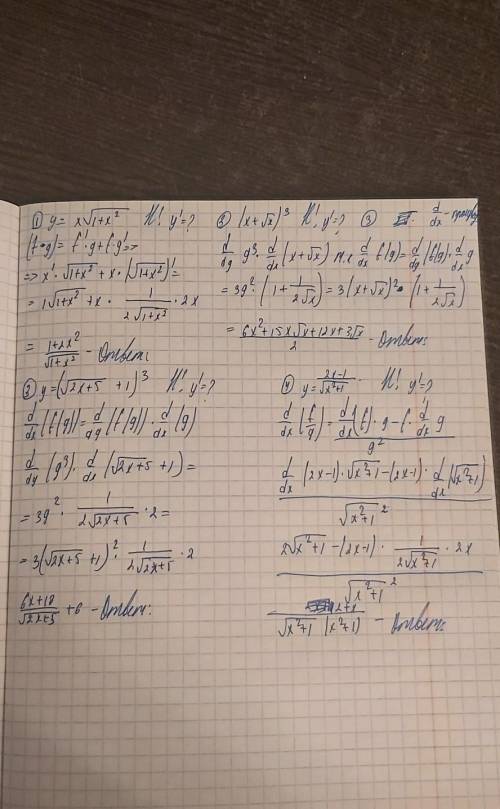 ① y = x√(1+x²)   H! y'=?
(f·g)' = f'·g+f·g' =>
=> x'·√(1+x²) + x·(√(1+x²))' =
= 1√(1+x²) + x · 1/(2√(1+x²)) · 2x
= (1+2x²)/√(1+x²) - Ответ:
② (x+√x)³   H! y'=?   ③   d/dx -
d/dg g³ · d/dx (x+√x) т.к d/dx f(g) = d/dg (f(g)) · d/dx g
= 3g² · (1 + 1/(2√x)) = 3(x+√x)² · (1 + 1/(2√x))
= (6x²+15x√x+12x+3√x)/2 - Ответ:
③ y = (√(2x+5) + 1)³   H! y'=?
d/dx (f(g)) = d/dg (f(g)) · d/dx (g)
d/dg (g³) · d/dx (√(2x+5) + 1) =
= 3g² · 1/(2√(2x+5)) · 2 =
= 3(√(2x+5) + 1)² · 1/(2√(2x+5)) · 2
(6x+18)/√(2x+5) + 6 - Ответ:
④ y = (2x-1)/√(x²+1)   H! y'=?
d/dx (f/g) = (d/dx (f) · g - f · d/dx g)/g²
(d/dx (2x-1)·√(x²+1) - (2x-1) · d/dx (√(x²+1)))/√(x²+1)²
(2√(x²+1) - (2x-1) · 1/(2√(x²+1)) · 2x)/√(x²+1)²
2+x/(√(x²+1) (x²+1)) - Ответ: